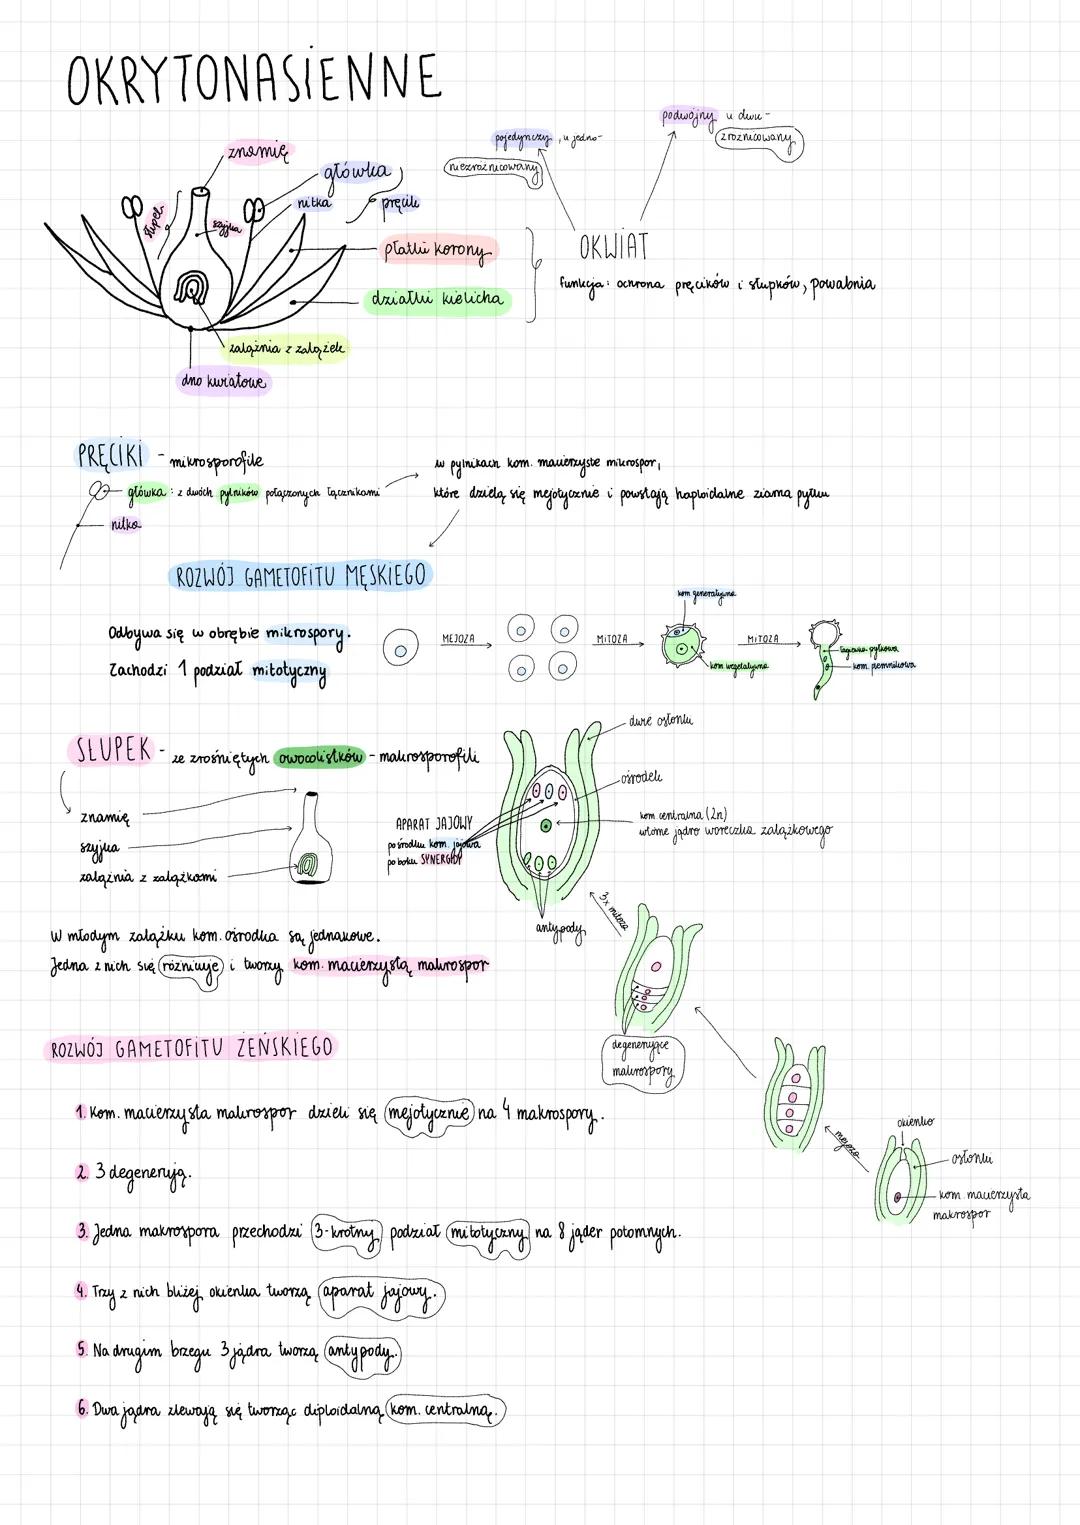 OKRYTONASIENNE
znamię
główka
nitka
pręcik
słupek
szyjka
płatki korony
działki kielicha
zalążnia z zalążek
dno kwiatowe
pojedynczy, u jedno-
niezróżnicowany
podwójny u dwu-
zróżnicowany
OKWIAT
funkcja: ochrona pręcików i słupków, powabnia
PRĘCIKI - mikrosporofile
główka: z dwóch pylników połączonych łącznikami
nitka
w pylnikach kom. macierzyste mikrospor,
które dzielą się mejotycznie i powstają haploidalne ziarna pyłku
ROZWÓJ GAMETOFITU MĘSKIEGO
Odbywa się w obrębie mikrospory.
Zachodzi 1 podział mitotyczny
MEJOZA
MITOZA
kom generatywna
kom wegetatywna
MITOZA
łagiewka pyłkowa
kom. plemnikowa
SŁUPEK - ze zrośniętych owocolistków - makrosporofili
znamię
szyjka
zalążnia z zalążkami
dwie osłonki
ośrodek
kom centralna (2n)
wtórne jądro woreczka zalążkowego
APARAT JAJOWY
po środku kom. jajowa
po boku SYNERGIDY
antypody
3x mitoza
W młodym zalążku kom. ośrodka są jednakowe.
Jedna z nich się różnicuje i tworzy kom. macierzystą makrospor
degenerujące
makrospory
ROZWÓJ GAMETOFITU ŻEŃSKIEGO
mejoza
okienko
osłonki
kom. macierzysta
makrospor
1. Kom. macierzysta makrospor dzieli się mejotycznie na 4 makrospory.
2. 3 degenerują.
3. Jedna makrospora przechodzi 3-krotny podział mitotyczny na 8 jąder potomnych.
4. Trzy z nich bliżej okienka tworzą aparat jajowy.
5. Na drugim brzegu 3 jądra tworzą antypody.
6. Dwa jądra zlewają się tworząc diploidalną kom. centralną.